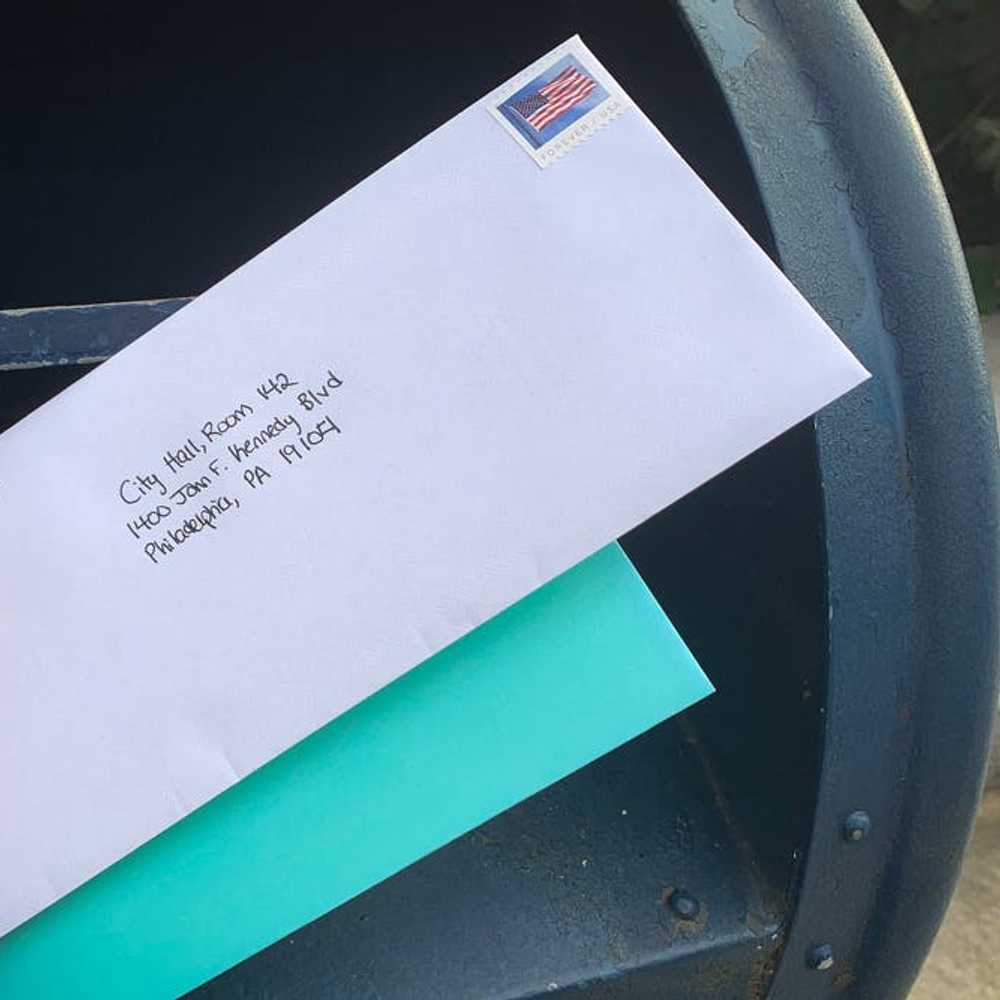 FOREVER / USA
City Hall, Room 142
1400 John F. Kennedy Blvd
Philadelphia, PA 19104